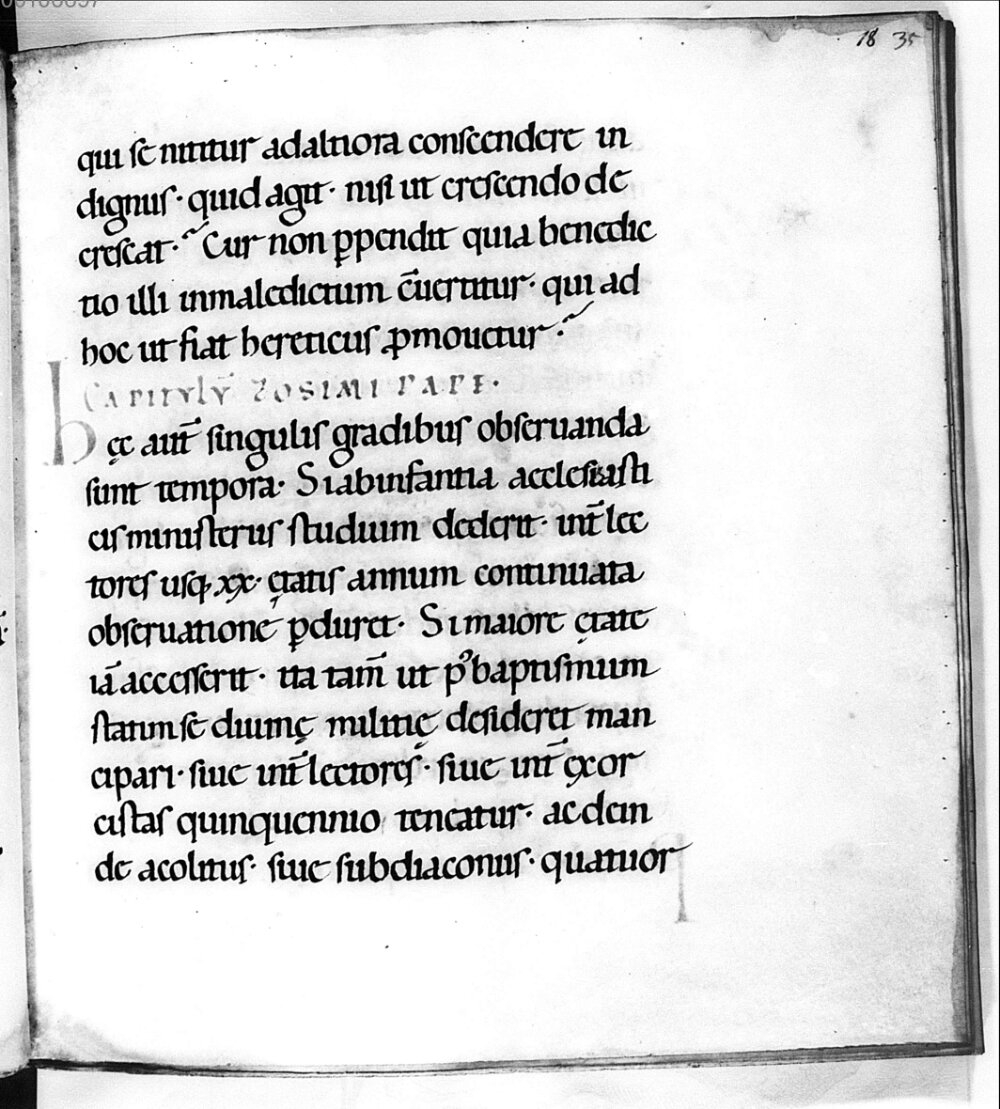 18 35
qui se nititur ad altiora conscendere in
dignus · quid agit · nisi ut crescendo de
crescat ·~ Cur non ꝑpendit quia benedic
tio illi inmaledictum c̄uertitur · qui ad
hoc ut fiat hereticus ꝓmouetur ·~
CAPITVLV̄ ZOSIMI PAPE ·
hęc aut̄ singulis gradibus obseruanda
sunt tempora · Si ab infantia aecclesiasti
cis ministeriis studium dederit · int̄ lec
tores usq; xx · ętatis annum continuata
obseruatione ꝑduret · Si maiore ętate
iā accesserit · ita tam̄ ut p᾽ baptismum
statim se diuinę militię desideret man
cipari · siue int̄ lectores · siue int̄ ęxor
cistas quinquennio teneatur · ac dein
de acolitus · siue subdiaconus · quatuor